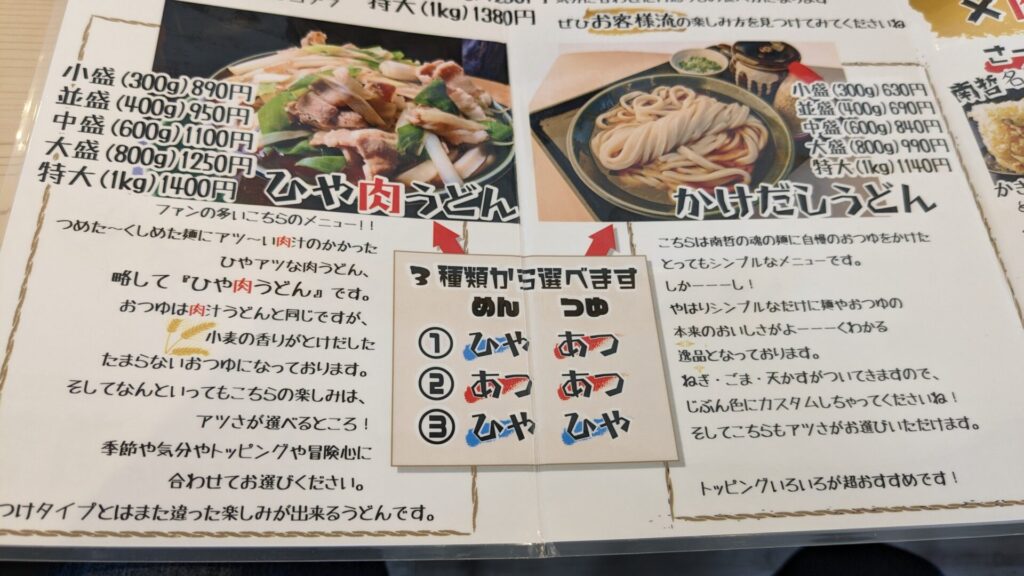 特大(1kg)1380円
ぜひお客様流の楽しみ方を見つけてみてくださいね
小盛(300g)890円
並盛(400g)950円
中盛(600g)1100円
大盛(800g)1250円
特大(1kg)1400円
ひや肉うどん
ファンの多いこちらのメニュー!!
つめた〜くしめた麺にアツ〜い肉汁のかかった
ひやアツな肉うどん、
略して『ひや肉うどん』です。
おつゆは肉汁うどんと同じですが、
小麦の香りがとけだした
たまらないおつゆになっております。
そしてなんといってもこちらの楽しみは、
アツさが選べるところ!
季節や気分やトッピングや冒険心に
合わせてお選びください。
つけタイプとはまた違った楽しみが出来るうどんです。
3種類から選べます
めん つゆ
① ひや あつ
② あつ あつ
③ ひや ひや
小盛(300g)630円
並盛(400g)690円
中盛(600g)840円
大盛(800g)990円
特大(1kg)1140円
かけだしうどん
こちらは南哲の魂の麺に自慢のおつゆをかけた
とってもシンプルなメニューです。
しかーーーし!
やはりシンプルなだけに麺やおつゆの
本来のおいしさがよーーーくわかる
逸品となっております。
ねぎ・ごま・天かすがついてきますので、
じぶん色にカスタムしちゃってくださいね!
そしてこちらもアツさがお選びいただけます。
トッピングいろいろが超おすすめです!
南哲名